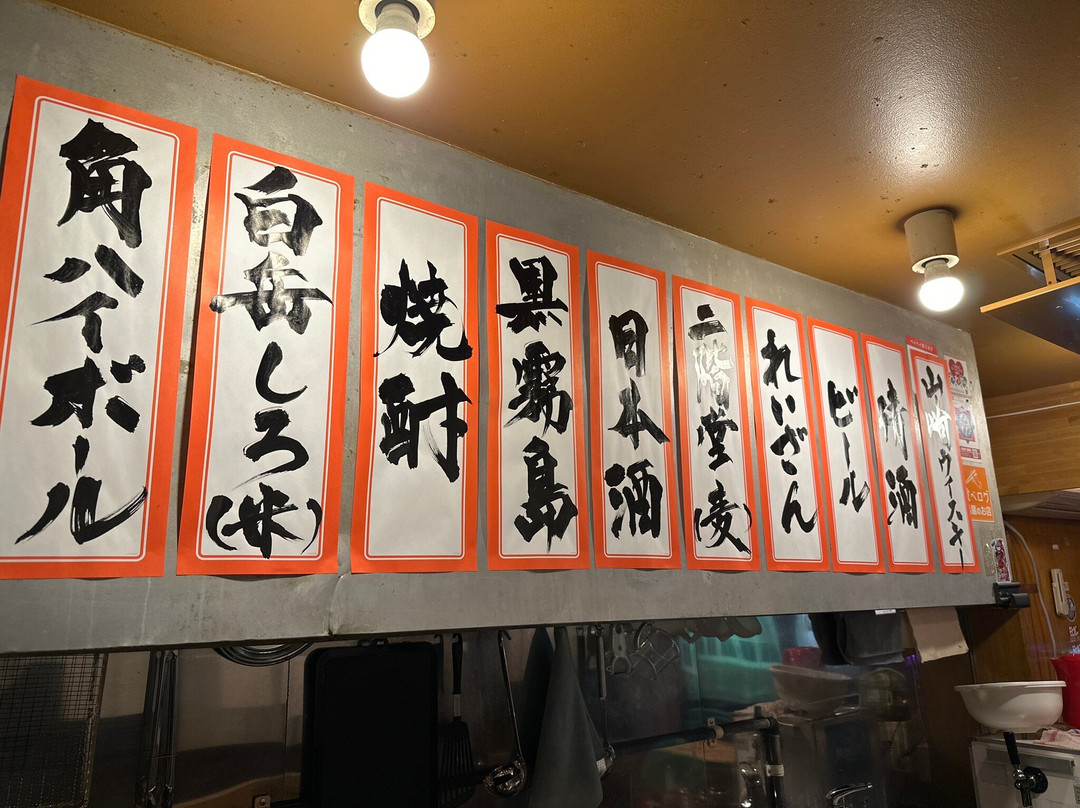 角ハイボール
白岳しろ(米)
焼酎
黒霧島
日本酒
二階堂(麦)
れいざん
ビール
清酒
山崎ウイスキー
べログ
のお店